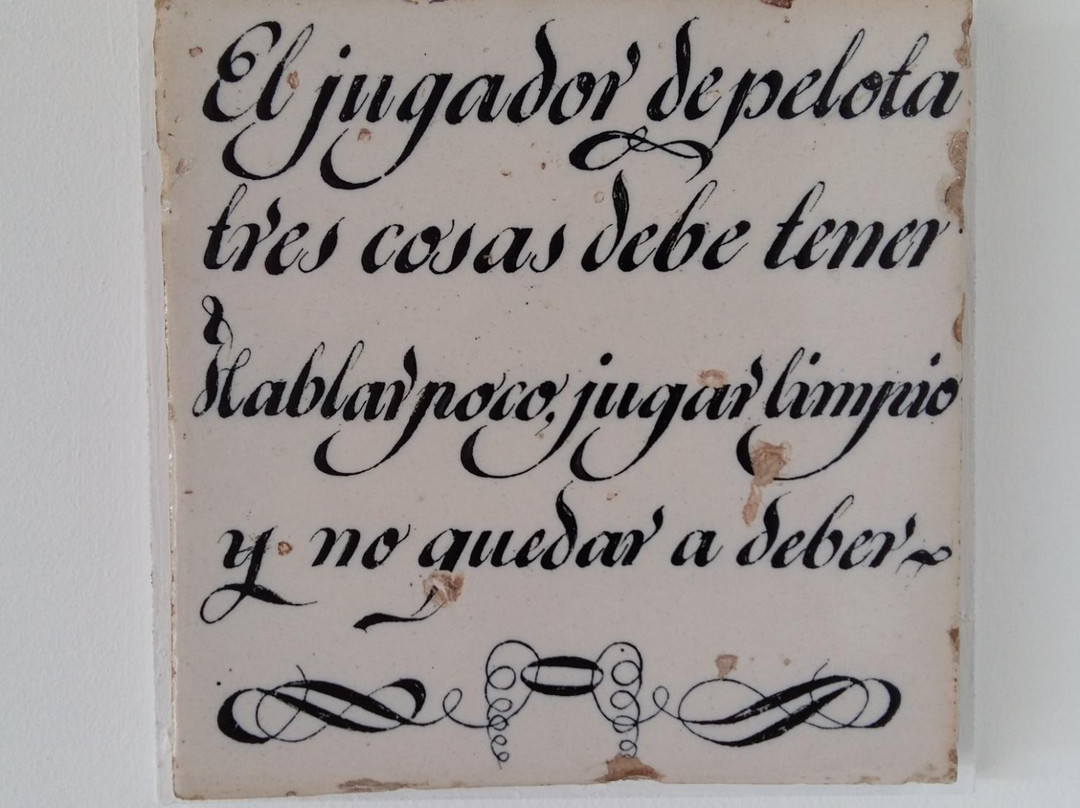 El jugador de pelota
tres cosas debe tener
Hablar poco, jugar limpio
y no quedar a deber~